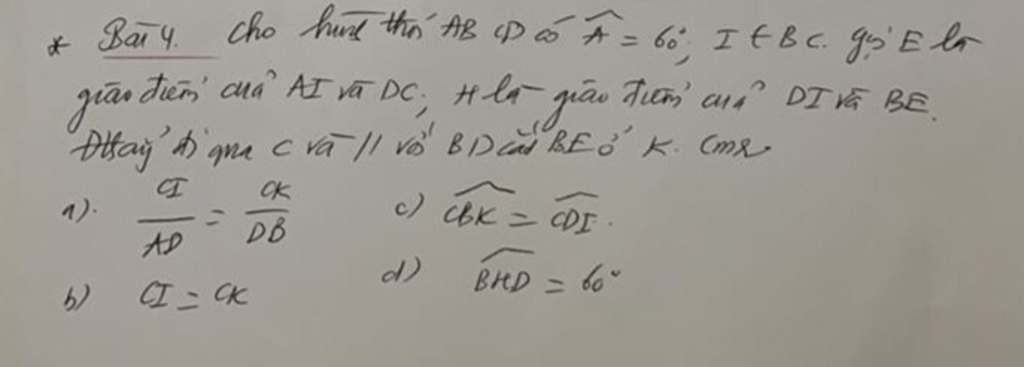 * Bài 4. Cho hình thoi ABCD có Â = 60°, I ∈ BC. gọi E là
giao điểm của AI và DC; H là giao điểm của DI và BE.
Đthẳg đi qua C và // với BD cắt BE ở K. Cmr
a). CI/AD = CK/DB c) CBK = CDI.
b) CI = CK d) BHD = 60°